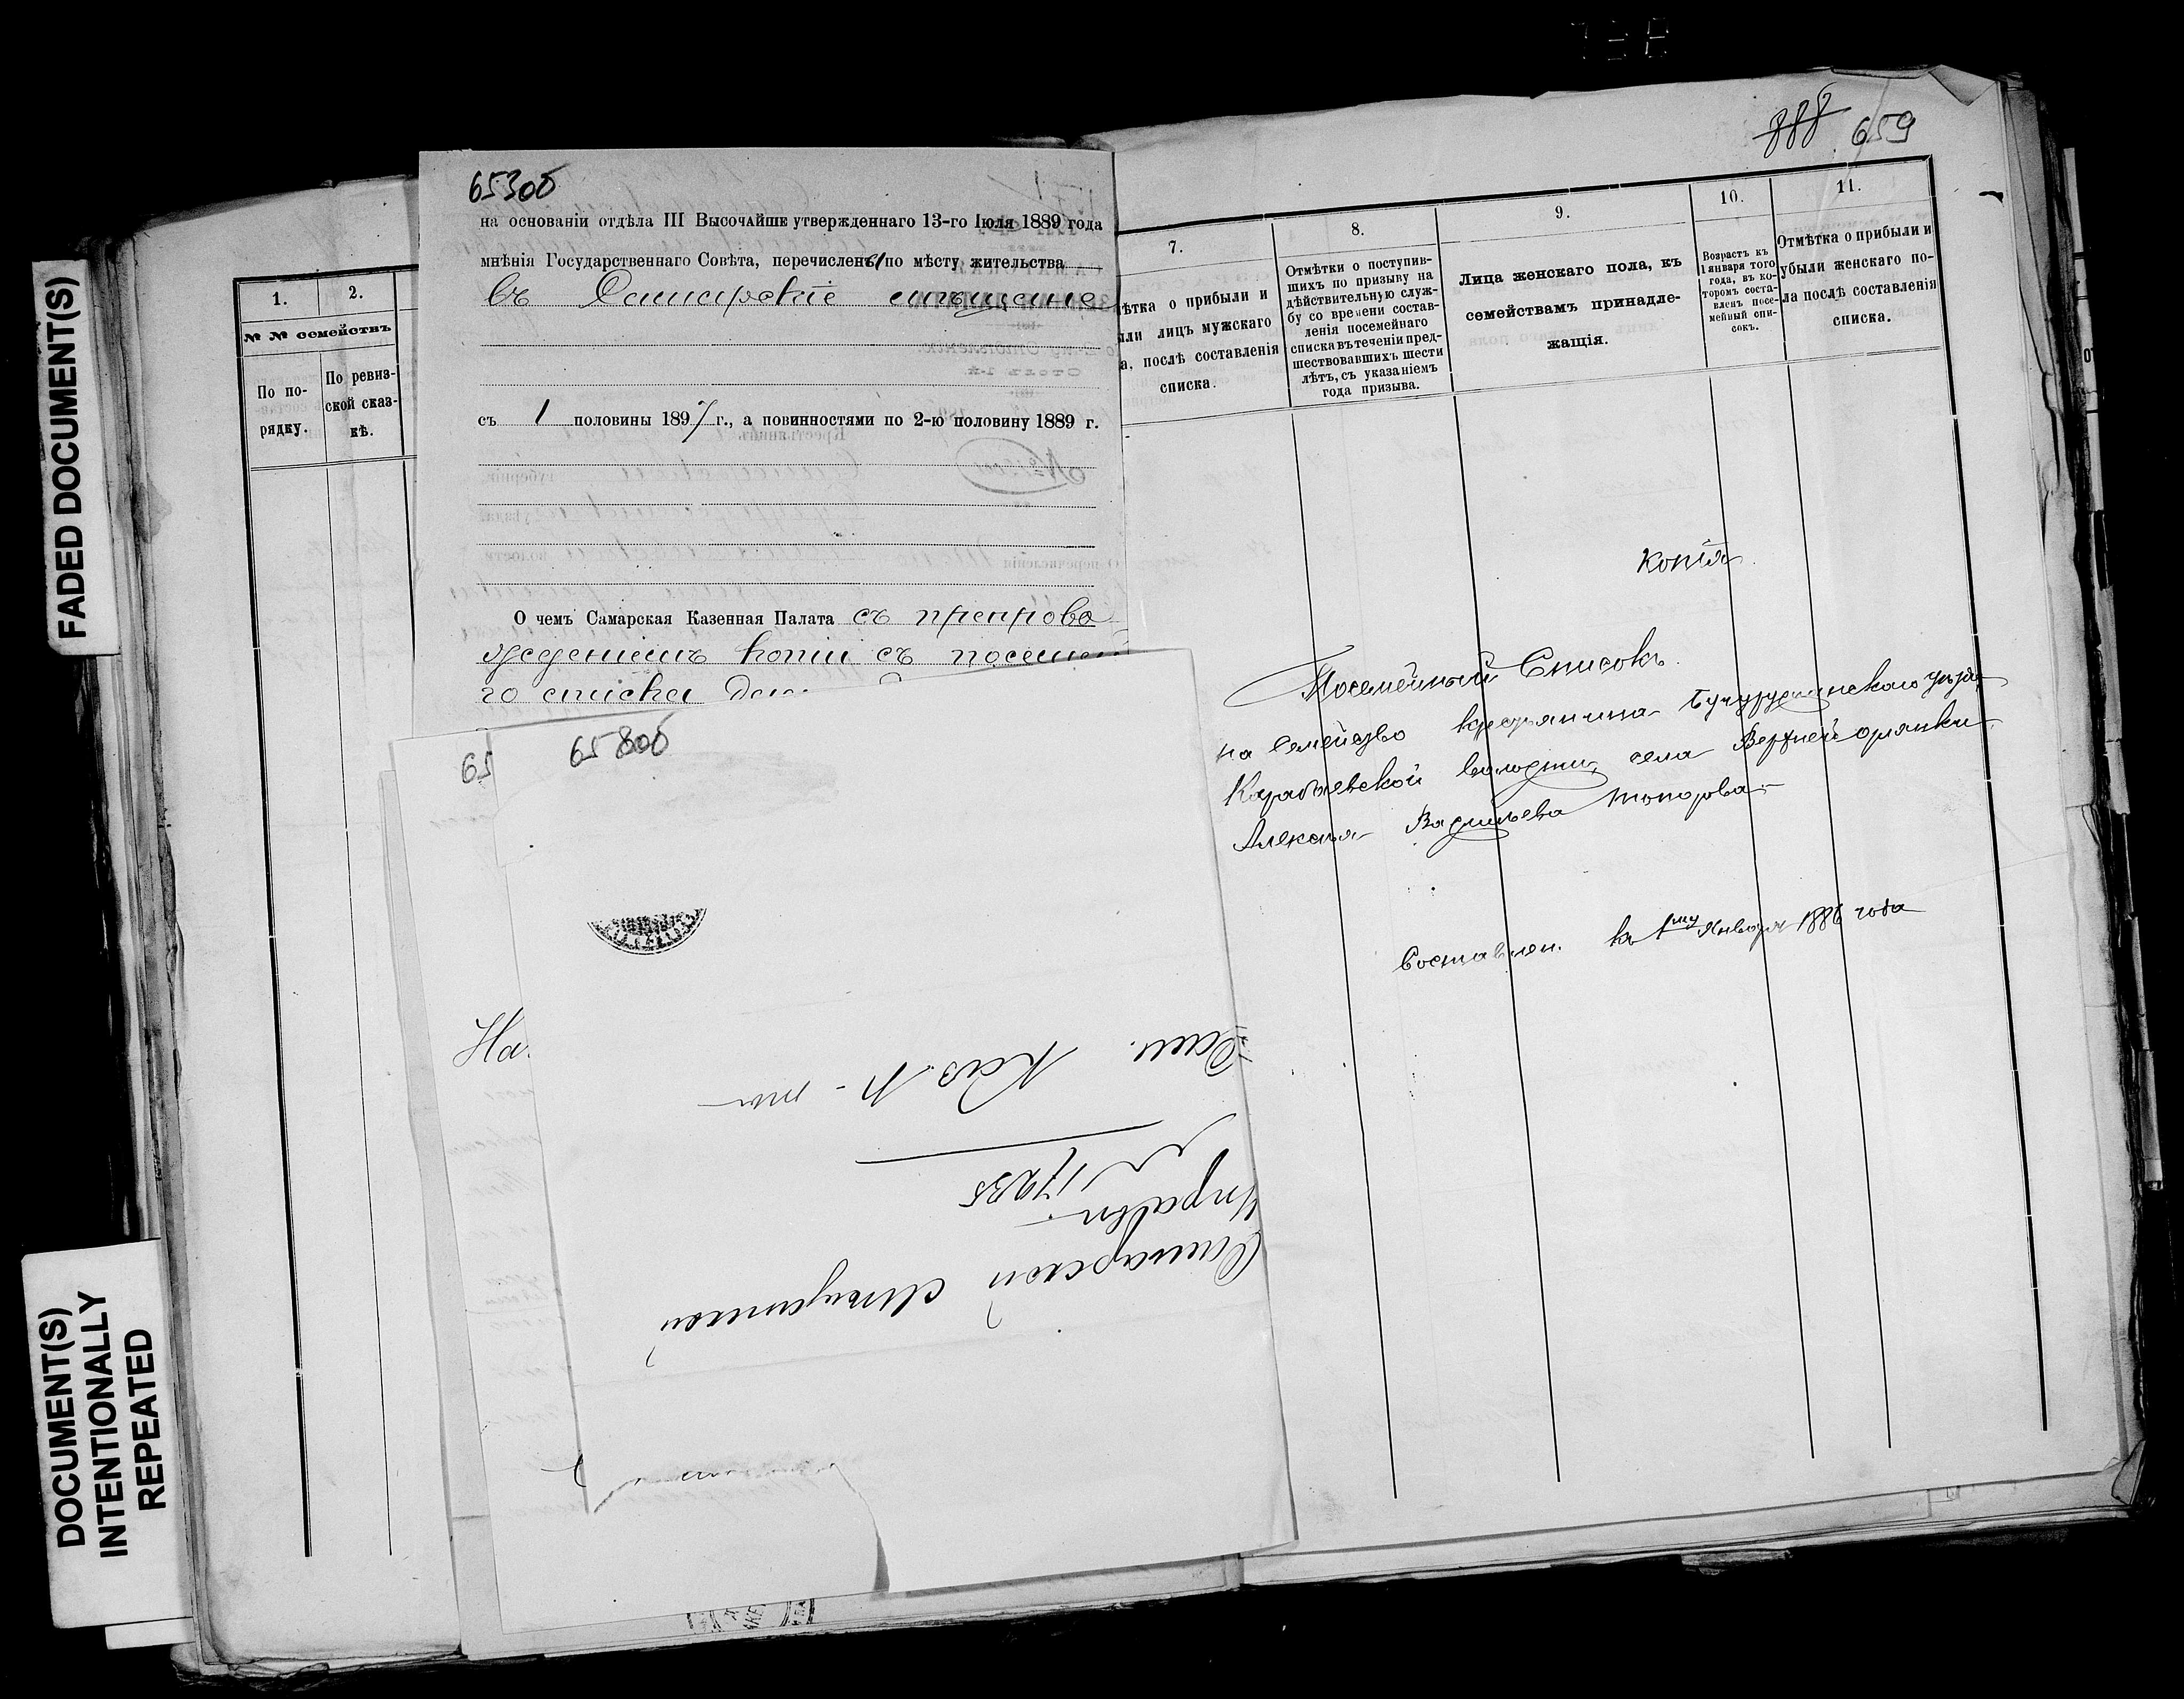 FADED DOCUMENT(S)
DOCUMENT(S)
INTENTIONALLY
REPEATED
1.
2.
№ № семействъ
По по-
рядку.
По ревиз-
ской сказ-
кѣ.
на основаніи отдѣла III Высочайше утвержденнаго 13-го Іюля 1889 года
мнѣнія Государственнаго Совѣта, перечислены по мѣсту жительства
въ Самарскіе мѣщане
съ 1 половины 1897 г., а повинностями по 2-ю половину 1889 г.
О чемъ Самарская Казенная Палата съ препрово
жденіемъ копіи съ посемей
го списка
65
На.
Самарской Мѣщанской
Управы
17235
Сам. Каз. П-та
888 659
7.
ѣтка о прибыли и
ли лицъ мужского
а, послѣ составленія
списка.
8.
Отмѣтки о поступив-
шихъ по призыву на
дѣйствительную служ-
бу со времени состав-
ленія посемейнаго
списка въ теченіи пред-
шествовавшихъ шести
лѣтъ, съ указаніемъ
года призыва.
9.
Лица женскаго пола, къ
семействамъ принадле-
жащія.
10.
Возрастъ къ
1 января того
года, въ ко-
торомъ соста-
вленъ посе-
мейный спи-
сокъ.
11.
Отмѣтка о прибыли и
убыли женскаго по-
ла послѣ составленія
списка.
Копія
Посемейный Списокъ
на семейство крестьянина Бугурусланскаго уѣзда
волости, села Верхней орлянки
Алексѣя Васильева Топорова
Составлен. къ 1му Января 1886 года